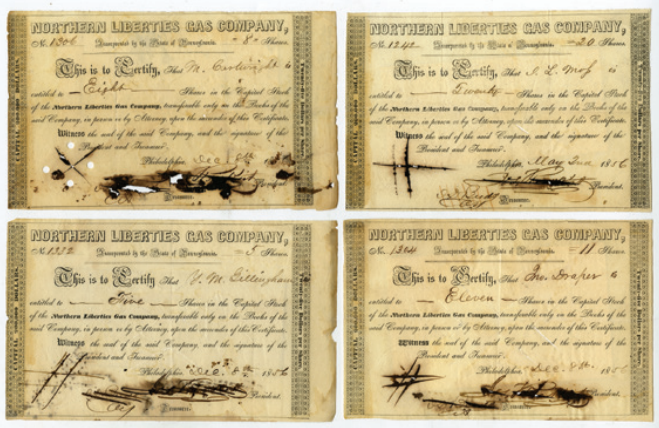 NORTHERN LIBERTIES GAS COMPANY,
No. 1306 Incorporated by the State of Pennsylvania. 8 Shares.
This is to Certify, That M. Cartwright is
entitled to Eight Shares in the Capital Stock
of the Northern Liberties Gas Company, transferable only on the Books of the
said Company, in person or by Attorney, upon the surrender of this Certificate.
Witness the seal of the said Company, and the signature of the
President and Treasurer.
Philadelphia, Dec 8th
President.
Treasurer.
Twenty-five Dollars per Share.
NORTHERN LIBERTIES GAS COMPANY,
No. 1242 Incorporated by the State of Pennsylvania. 20 Shares.
This is to Certify, That I. L. Moss is
entitled to Twenty Shares in the Capital Stock
of the Northern Liberties Gas Company, transferable only on the Books of the
said Company, in person or by Attorney, upon the surrender of this Certificate.
Witness the seal of the said Company, and the signature of the
President and Treasurer.
Philadelphia, May 2nd 1856
President.
Treasurer.
Twenty-five Dollars per Share.
NORTHERN LIBERTIES GAS COMPANY,
No. Incorporated by the State of Pennsylvania. 5 Shares.
This is to Certify, That M. Gillingham is
entitled to Five Shares in the Capital Stock
of the Northern Liberties Gas Company, transferable only on the Books of the
said Company, in person or by Attorney, upon the surrender of this Certificate.
Witness the seal of the said Company, and the signature of the
President and Treasurer.
Philadelphia, Dec. 8th 1856
President.
Treasurer.
Twenty-five Dollars per Share.
NORTHERN LIBERTIES GAS COMPANY,
No. 1304 Incorporated by the State of Pennsylvania. 11 Shares.
This is to Certify, That Draper is
entitled to Eleven Shares in the Capital Stock
of the Northern Liberties Gas Company, transferable only on the Books of the
said Company, in person or by Attorney, upon the surrender of this Certificate.
Witness the seal of the said Company, and the signature of the
President and Treasurer.
Philadelphia, Dec. 8th 1856
President.
Treasurer.
Twenty-five Dollars per Share.